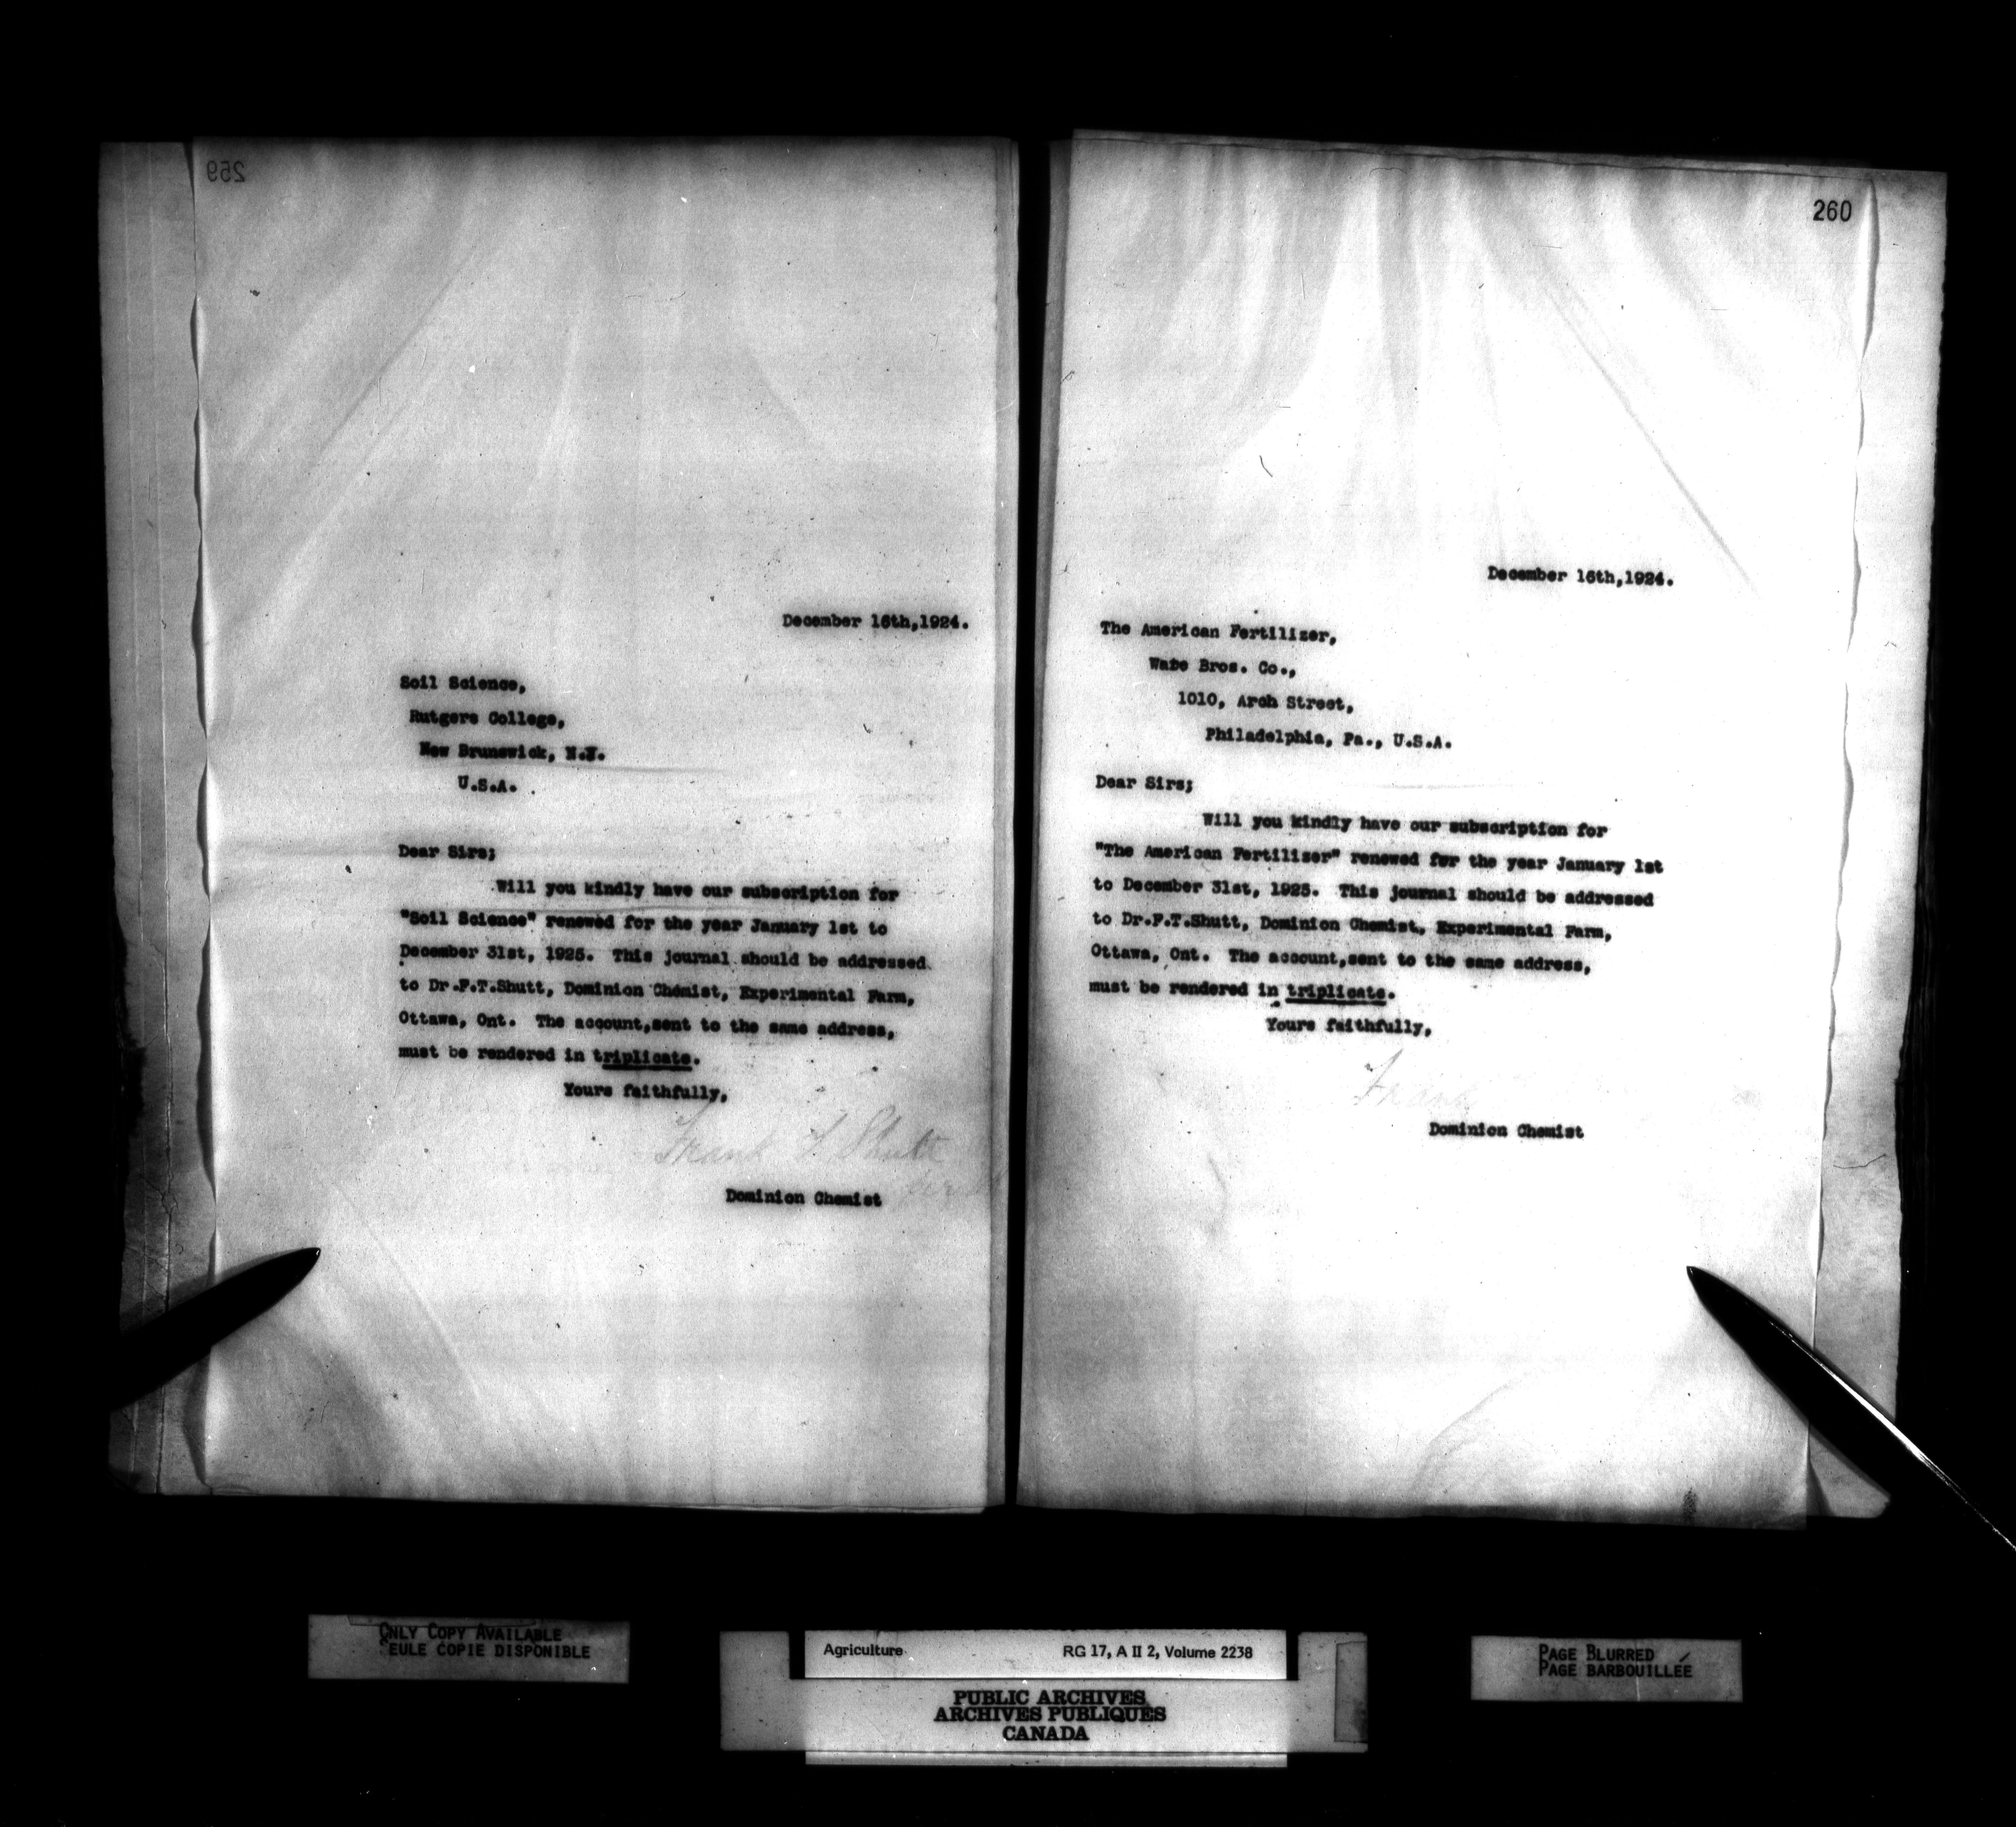 259
December 16th,1924.
Soil Science,
Rutgers College,
New Brunswick, N.J.
U.S.A.
Dear Sirs;
Will you kindly have our subscription for
"Soil Science" renewed for the year January 1st to
December 31st, 1925. This journal should be addressed
to Dr.F.T.Shutt, Dominion Chemist, Experimental Farm,
Ottawa, Ont. The account,sent to the same address,
must be rendered in triplicate.
Yours faithfully,
Frank T Shutt
Dominion Chemist
260
December 16th,1924.
The American Fertilizer,
Ware Bros. Co.,
1010, Arch Street,
Philadelphia, Pa., U.S.A.
Dear Sirs;
Will you kindly have our subscription for
"The American Fertilizer" renewed for the year January 1st
to December 31st, 1925. This journal should be addressed
to Dr.F.T.Shutt, Dominion Chemist, Experimental Farm,
Ottawa, Ont. The account,sent to the same address,
must be rendered in triplicate.
Yours faithfully,
Frank
Dominion Chemist
ONLY COPY AVAILABLE
SEULE COPIE DISPONIBLE
Agriculture RG 17, A II 2, Volume 2238
PUBLIC ARCHIVES
ARCHIVES PUBLIQUES
CANADA
PAGE BLURRED
PAGE BARBOUILLÉE